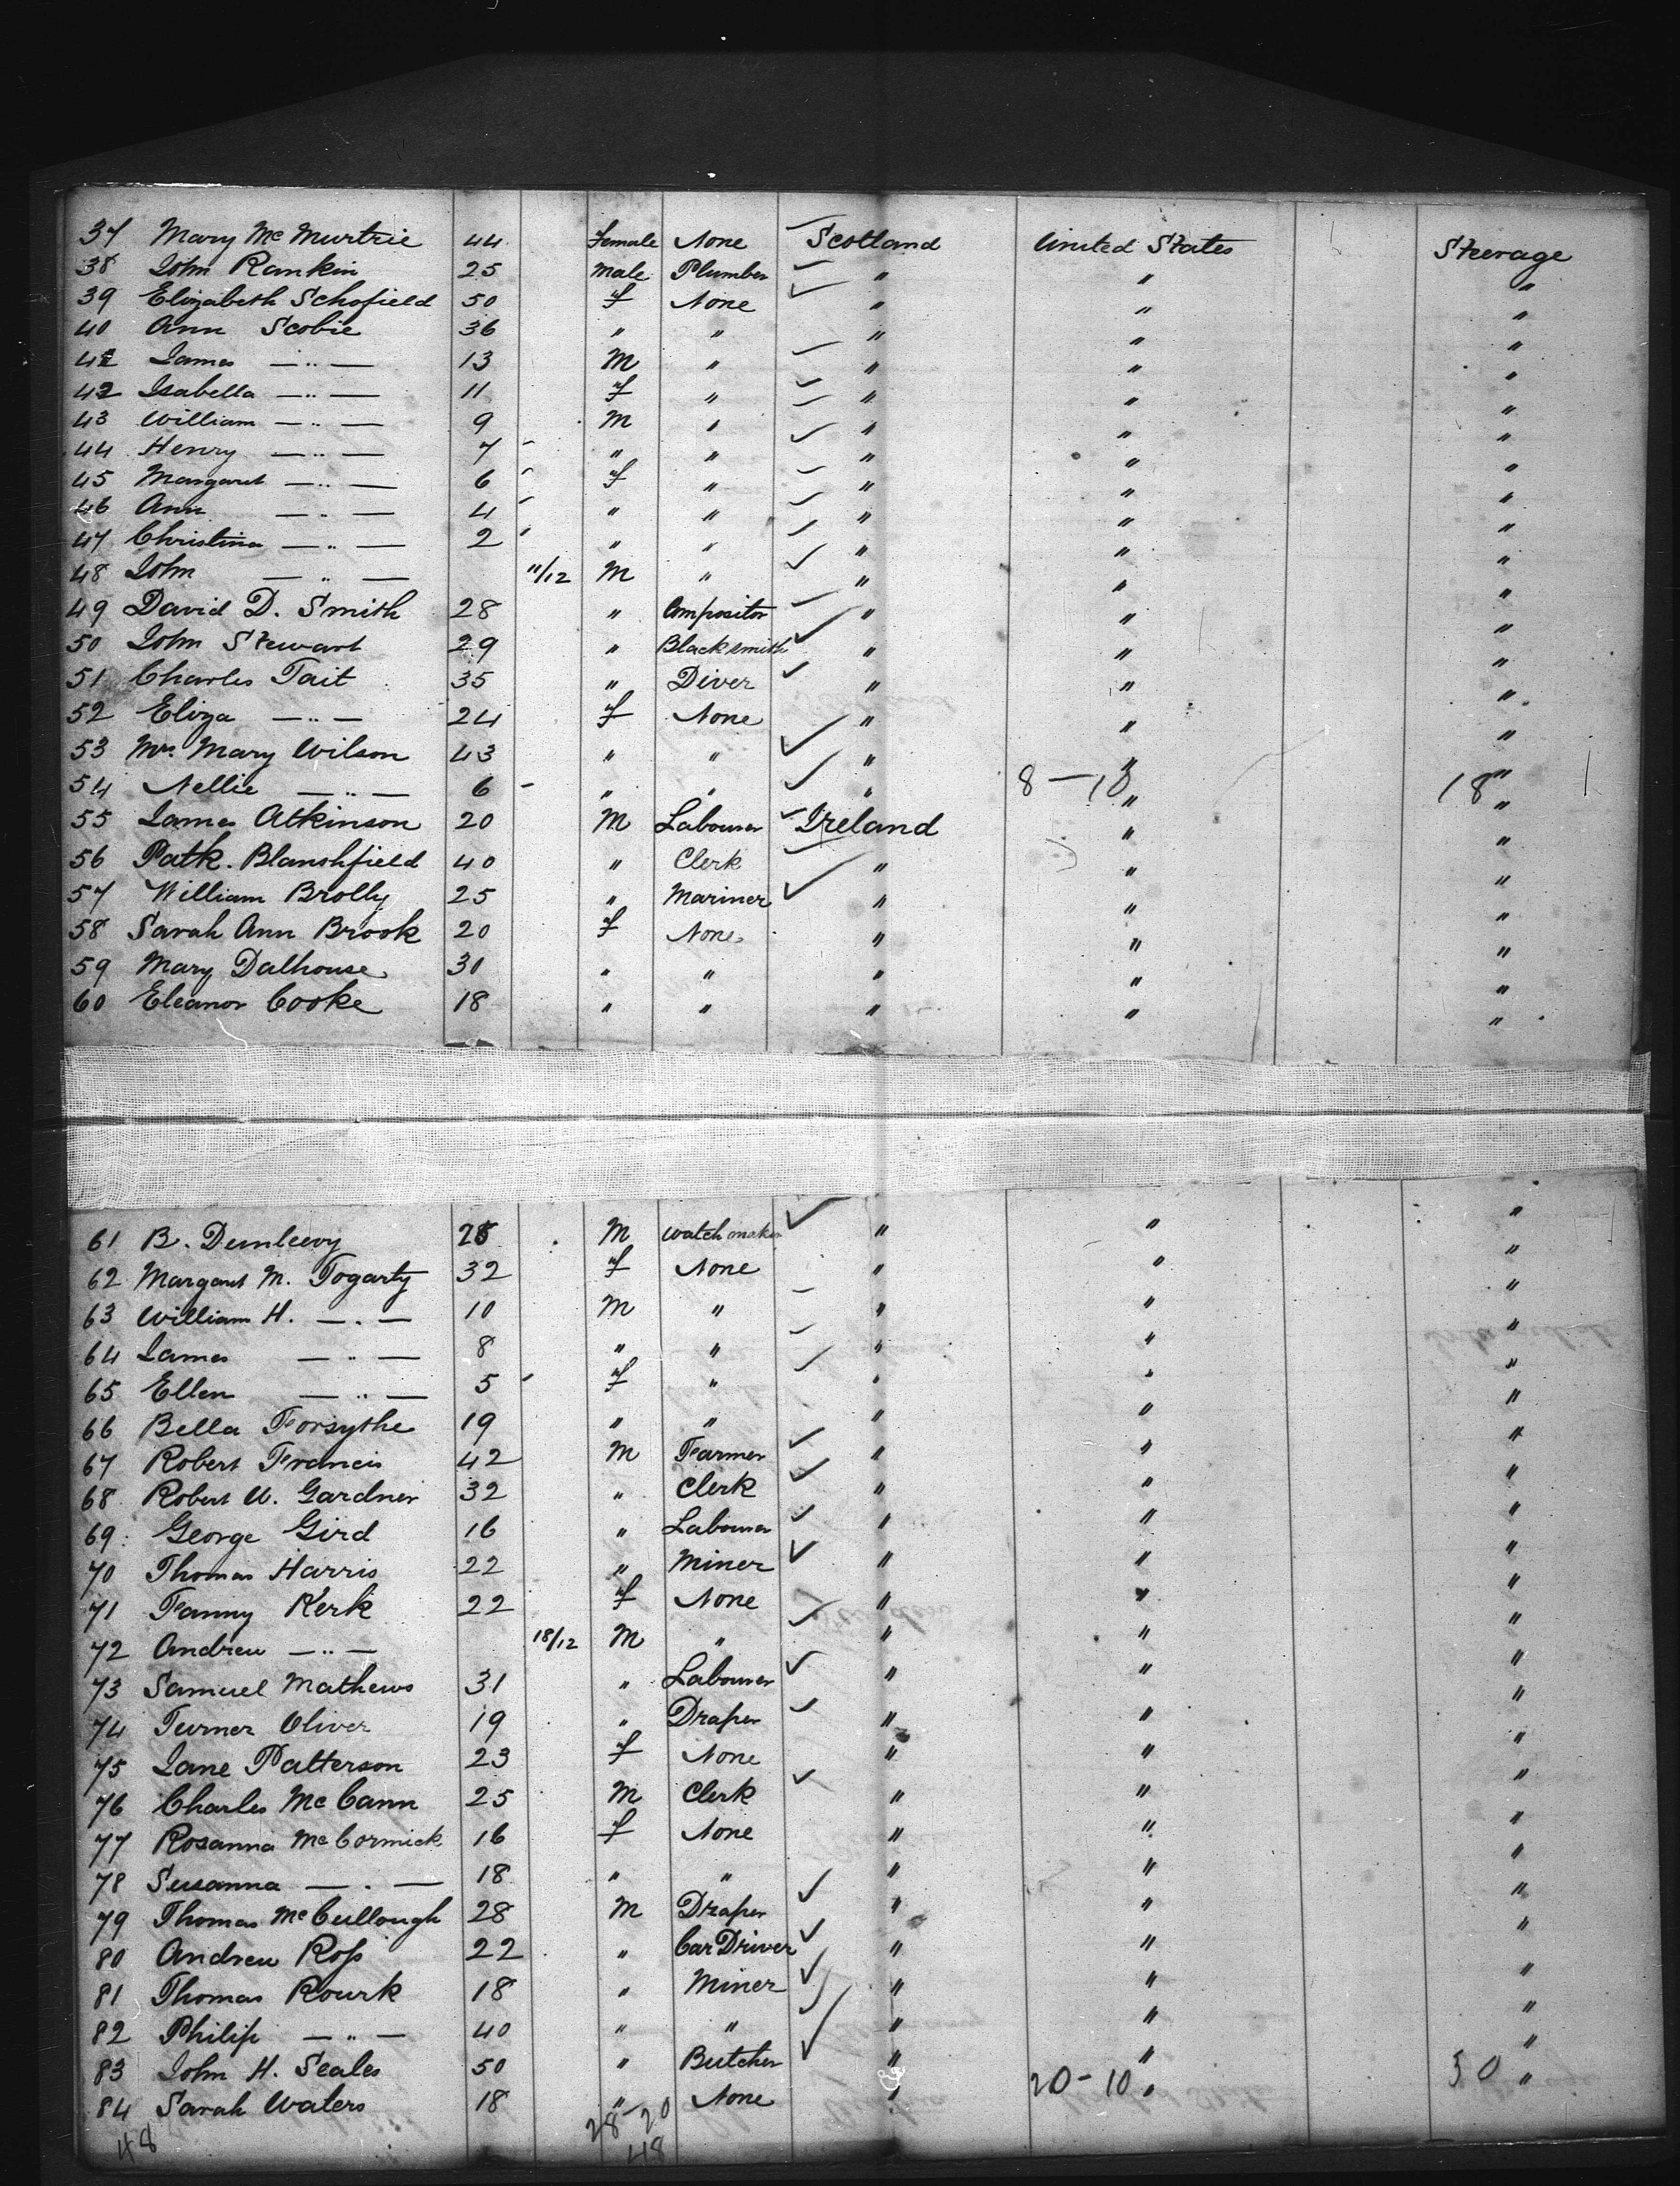 37 Mary Mc Murtrie 44 Female None Scotland United States Steerage
38 John Rankin 25 Male Plumber " " "
39 Elizabeth Schofield 50 F None " " "
40 Ann Scobie 36 " " " " "
41 James — " — 13 M " " " "
42 Isabella — " — 11 F " " " "
43 William — " — 9 M " " " "
44 Henry — " — 7 " " " " "
45 Margaret — " — 6 F " " " "
46 Ann — " — 4 " " " " "
47 Christina — " — 2 " " " " "
48 John — " — 11/12 M " " " "
49 David D. Smith 28 " Compositor " " "
50 John Stewart 29 " Blacksmith " " "
51 Charles Tait 35 " Diver " " "
52 Eliza — " — 24 F None " " "
53 Mrs. Mary Wilson 43 " " " " "
54 Nellie — " — 6 " " " 8-10 " 18 "
55 James Atkinson 20 M Labourer Ireland " "
56 Patk. Blanshfield 40 " Clerk " " "
57 William Brolly 25 " Mariner " " "
58 Sarah Ann Brook 20 F None " " "
59 Mary Dalhouse 30 " " " " "
60 Eleanor Cooke 18 " " " " "
61 B. Dunleevy 28 M Watchmaker " " "
62 Margaret M. Fogarty 32 F None " " "
63 William H. — " — 10 M " " " "
64 James — " — 8 " " " " "
65 Ellen — " — 5 F " " " "
66 Bella Forsythe 19 " " " " "
67 Robert Francis 42 M Farmer " " "
68 Robert W. Gardner 32 " Clerk " " "
69 George Gird 16 " Labourer " " "
70 Thomas Harris 22 " Miner " " "
71 Fanny Kerk 22 F None " " "
72 Andrew — " — 18/12 M " " " "
73 Samuel Mathews 31 " Labourer " " "
74 Turner Oliver 19 " Draper " " "
75 Jane Patterson 23 F None " " "
76 Charles Mc Cann 25 M Clerk " " "
77 Rosanna Mc Cormick 16 F None " " "
78 Susanna — " — 18 " " " " "
79 Thomas Mc Cullough 28 M Draper " " "
80 Andrew Ross 22 " Car Driver " " "
81 Thomas Rourk 18 " Miner " " "
82 Philip — " — 40 " " " " "
83 John H. Seales 50 " Butcher " " "
84 Sarah Waters 18 " None " 20-10 " 30 "
48 28-20
48